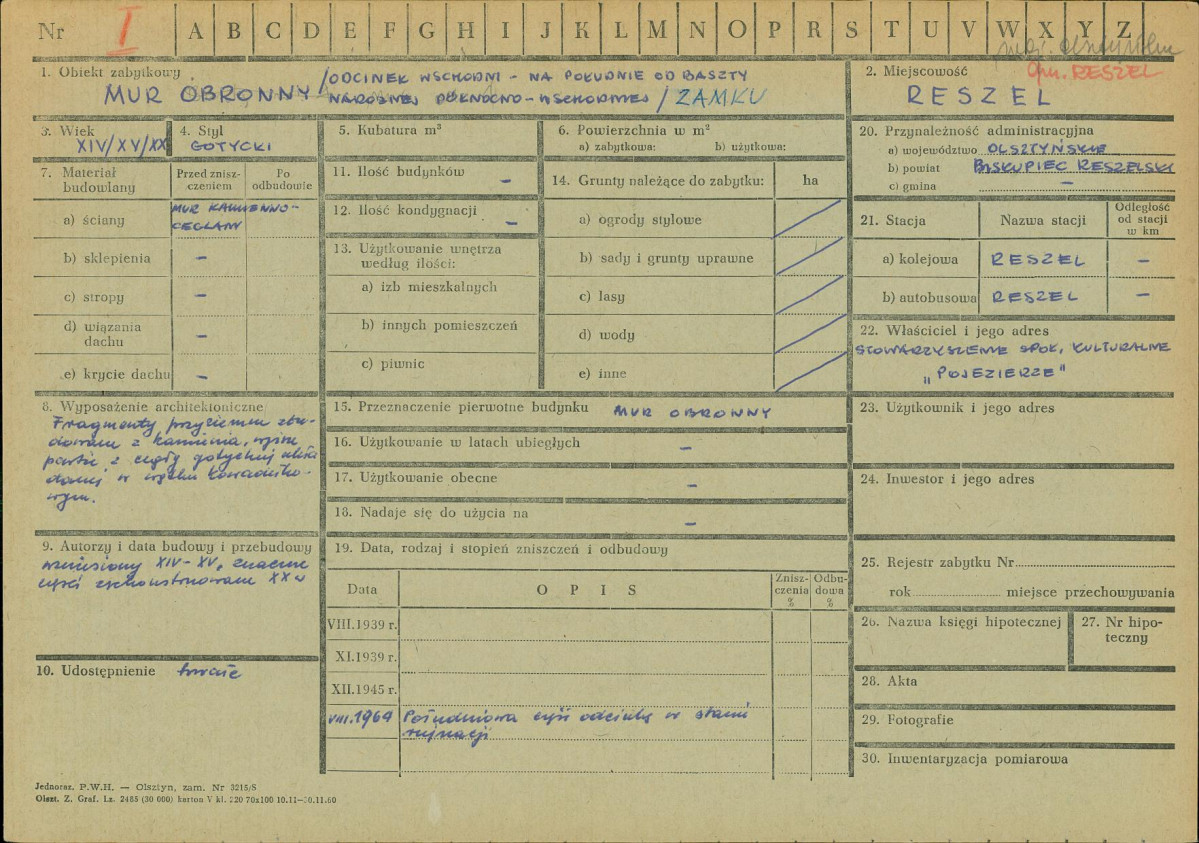 Nr I A B C D E F G H I J K L M N O P R S T U V W X Y Z
woj. olsztyńskie
gm. RESZEL
1. Obiekt zabytkowy
MUR OBRONNY /ODCINEK WSCHODNI - NA POŁUDNIE OD BASZTY
NAROŻNEJ PÓŁNOCNO-WSCHODNIEJ/ ZAMKU
2. Miejscowość
RESZEL
3. Wiek
XIV/XV/XX
4. Styl
GOTYCKI
5. Kubatura m³
6. Powierzchnia w m²
a) zabytkowa: b) użytkowa:
20. Przynależność administracyjna
a) województwo OLSZTYŃSKIE
b) powiat BISKUPIEC RESZELSKI
c) gmina –
7. Materiał
budowlany
Przed znisz-
czeniem
Po
odbudowie
a) ściany MUR KAMIENNO-
CEGLANY
b) sklepienia –
c) stropy –
d) wiązania
dachu –
e) krycie dachu –
11. Ilość budynków –
12. Ilość kondygnacji –
13. Użytkowanie wnętrza
według ilości:
a) izb mieszkalnych
b) innych pomieszczeń
c) piwnic
14. Grunty należące do zabytku: ha
a) ogrody stylowe
b) sady i grunty uprawne
c) lasy
d) wody
e) inne
21. Stacja Nazwa stacji Odległość
od stacji
w km
a) kolejowa RESZEL –
b) autobusowa RESZEL –
22. Właściciel i jego adres
STOWARZYSZENIE SPOŁ. KULTURALNE
"POJEZIERZE"
8. Wyposażenie architektoniczne
Fragmenty przyziemu zbu-
dowane z kamienia, wyższe
partie z cegły gotyckiej ukła
danej w wątku kowadełko-
wym.
15. Przeznaczenie pierwotne budynku MUR OBRONNY
16. Użytkowanie w latach ubiegłych –
17. Użytkowanie obecne –
18. Nadaje się do użycia na –
23. Użytkownik i jego adres
24. Inwestor i jego adres
9. Autorzy i data budowy i przebudowy
wzniesiony XIV-XV, znaczne
części zrekonstruowane XX w
19. Data, rodzaj i stopień zniszczeń i odbudowy
Data O P I S Znisz-
czenia
% Odbu-
dowa
%
VIII.1939 r.
XI.1939 r.
XII.1945 r.
VIII.1969 Południowa część odcinka w stanie
ruinacji
25. Rejestr zabytku Nr
rok miejsce przechowywania
26. Nazwa księgi hipotecznej
27. Nr hipo-
teczny
10. Udostępnienie trwałe
28. Akta
29. Fotografie
30. Inwentaryzacja pomiarowa
Jednoraz. P.W.H. — Olsztyn, zam. Nr 3215/S
Olszt. Z. Graf. Lz. 2485 (30 000) karton V kl. 220 70x100 10.11—30.11.60